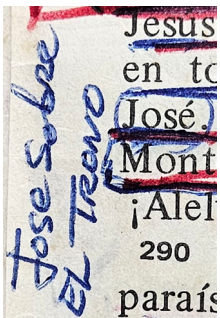 Jose Sobre
EL TRONO
Jesús
en to
José.
Mont
¡Alel
290
paraís